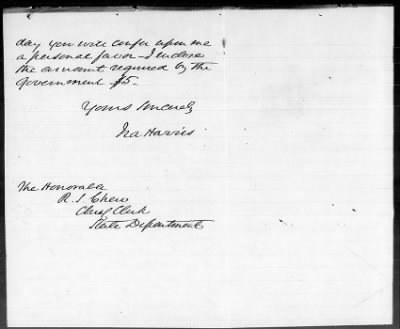 day you will confer upon me
a personal favor - I enclose
the amount required by the
Government $5.
Yours Sincerely
Ira Harris
The Honorable
R. S. Chew
Chief Clerk
State Department